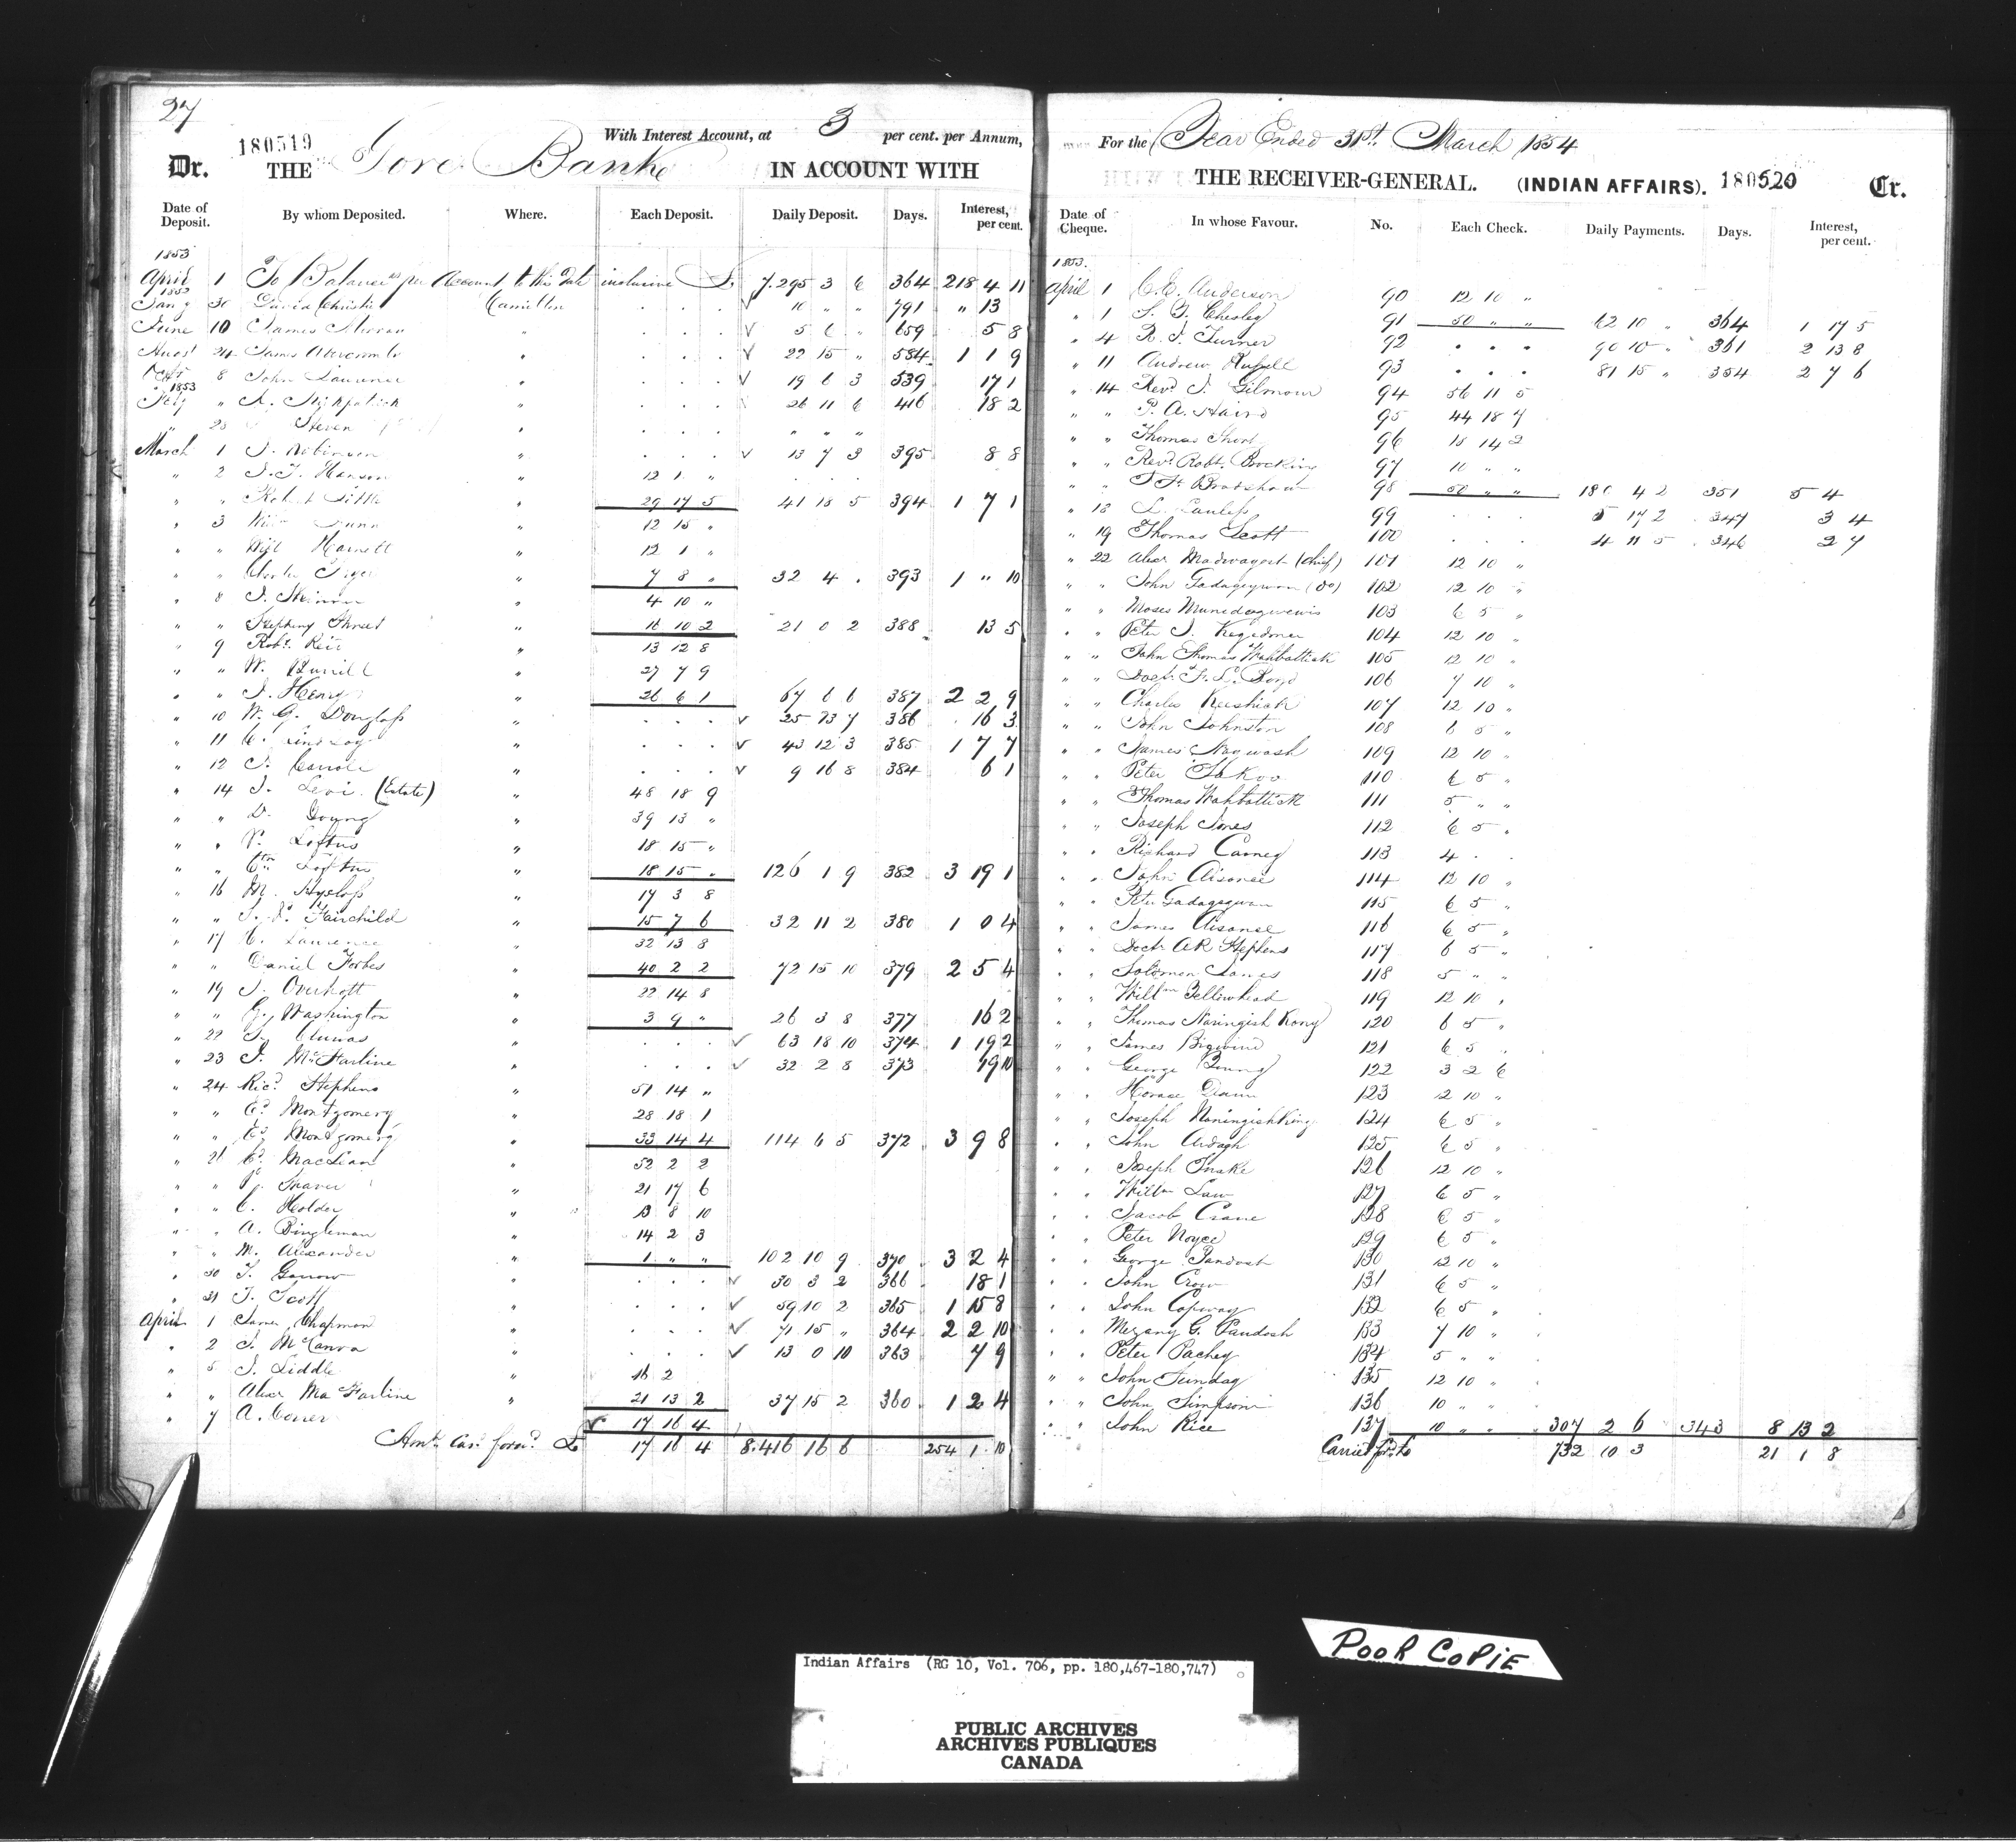 27
180519
With Interest Account, at 3 per cent. per Annum,
Dr. THE Gore Bank IN ACCOUNT WITH
Date of Deposit. By whom Deposited. Where. Each Deposit. Daily Deposit. Days. Interest, per cent.
1853
April 1 To Balance as per Account to this Date inclusive £ 7.295 3 6 364 218 4 11
1852
Jany 30 David Christie Hamilton . . . 10 " " 791 " 13
June 10 James " . . . 5 6 " 659 5 8
August 24 James Abercombe " . . . 22 15 " 584 1 1 9
Octr 8 John Lawrence " . . . 19 6 3 539 17 1
1853
Feby " Kirkpatrick " . . . 26 11 6 416 18 2
" 23 Steven " . . . " " "
March 1 J. Robinson " . . . 13 7 3 395 8 8
" 2 J. J. Hanson " 12 1 "
" " Robert Little " 29 17 5 41 18 5 394 1 7 1
" 3 " 12 15 "
" " Hamell " 12 1 "
" " Charles " 7 8 " 32 4 . 393 1 " 10
" 8 J. " 4 10 "
" " Stephen Street " 16 10 2 21 0 2 388 13 5
" 9 Robt. Keir " 13 12 8
" " W. " 27 7 9
" " J. Henry " 26 6 1 67 6 6 387 2 2 9
" 10 W. G. Douglass " . . . 25 13 7 386 16 3
" 11 C. " . . . 43 12 3 385 1 7 7
" 12 J. Carrole " . . . 9 16 8 384 6 1
" 14 J. Levi. (Estate) " 48 18 9
" " D. Young " 39 13 "
" " Loftus " 18 15 "
" " Loftus " 18 15 " 126 1 9 382 3 19 1
" 16 M. Hyslop " 17 3 8
" " Fairchild " 15 7 6 32 11 2 380 1 0 4
" 17 Lawrence " 32 13 8
" " Daniel Forbes " 40 2 2 72 15 10 379 2 5 4
" 19 J. Overholt " 22 14 8
" " G. Washington " 3 9 " 26 3 8 377 16 2
" 22 Clunas " . . . 63 18 10 374 1 19 2
" 23 J. McFarline " . . . 32 2 8 373 19 10
" 24 Ricd. Stephens " 51 14 "
" " Ed. Montgomery " 28 18 1
" " Ed. Montgomery " 33 14 4 114 6 5 372 3 9 8
" 26 MacLean " 52 2 2
" " " 21 17 6
" " C. Holder " 13 8 10
" " A. Bingleman " 14 2 3
" " M. Alexander " 1 " " 102 10 9 370 3 2 4
" 30 J. Garrow " . . . 30 3 2 366 18 1
" 31 J. Scott " . . . 59 10 2 365 1 15 8
April 1 James Chapman " . . . 71 15 " 364 2 2 10
" 2 J. " . . . 13 0 10 363 7 9
" 5 J. Liddle " 16 2
" " Alexr MacFarline " 21 13 2 37 15 2 360 1 2 4
" 7 A. 17 16 4
Amt. Card. forwd. £ 17 16 4 8.416 16 6 254 1 10
For the Year Ended 31st. March 1854
THE RECEIVER-GENERAL. (INDIAN AFFAIRS). 180520 Cr.
Date of Cheque. In whose Favour. No. Each Check. Daily Payments. Days. Interest, per cent.
1853.
April 1 C. E. Anderson 90 12 10 "
" 1 S. Y. Chesley 91 50 " " 62 10 " 364 1 17 5
" 4 R. J. Turner 92 " " " 90 10 " 361 2 13 8
" 11 Andrew Russell 93 . . . 81 15 " 354 2 7 6
" 14 Revd. J. Gilmour 94 56 11 5
" " P. A. 95 44 18 7
" " Thomas Short 96 18 14 2
" " Revd. Robt. Brocking 97 10 " "
" " Bradshaw 98 50 " " 180 4 2 351 5 4
" 18 99 . . . 5 17 2 347 3 4
" 19 Thomas Scott 100 . . . 4 11 5 346 2 7
" 22 Alexr Madwayosh (Chief) 101 12 10 "
" " John Gadagegwon (Do) 102 12 10 "
" " Moses Munedogwewis 103 6 5 "
" " Peter J. Kegedonce 104 12 10 "
" " John Thomas Wahbattick 105 12 10 "
" " Doctr. Boyd 106 7 10 "
" " Charles Keeshick 107 12 10 "
" " John Johnston 108 6 5 "
" " James Nagwash 109 12 10 "
" " Peter 110 6 5 "
" " Thomas Wahbattick 111 5 " "
" " Joseph Jones 112 6 5 "
" " Richard Carney 113 4 . .
" " John Aisance 114 12 10 "
" " Peter Gadagegwan 115 6 5 "
" " James Aisance 116 6 5 "
" " Doctr AR Stephens 117 6 5 "
" " Solomon James 118 5 " "
" " Willm Yellowhead 119 12 10 "
" " Thomas Naningish Kong 120 6 5 "
" " James Bigwind 121 6 5 "
" " George Young 122 3 2 6
" " Horace Dean 123 12 10 "
" " Joseph NaningishKing 124 6 5 "
" " John Ardagh 125 6 5 "
" " Joseph Snake 126 12 10 "
" " Willm Law 127 6 5 "
" " Jacob Crane 128 6 5 "
" " Peter Noyce 129 6 5 "
" " George Pandosh 130 12 10 "
" " John Crow 131 6 5 "
" " John Copway 132 6 5 "
" " Mezang G. Paudosh 133 7 10 "
" " Peter Pachey 134 5 " "
" " John Sunday 135 12 10 "
" " John Simpson 136 10 " "
" " John Rice 137 10 " " 307 2 6 343 8 13 2
Carried ford. £ 732 10 3 21 1 8
POOR COPIE
Indian Affairs (RG 10, Vol. 706, pp. 180,467-180,747)
PUBLIC ARCHIVES
ARCHIVES PUBLIQUES
CANADA